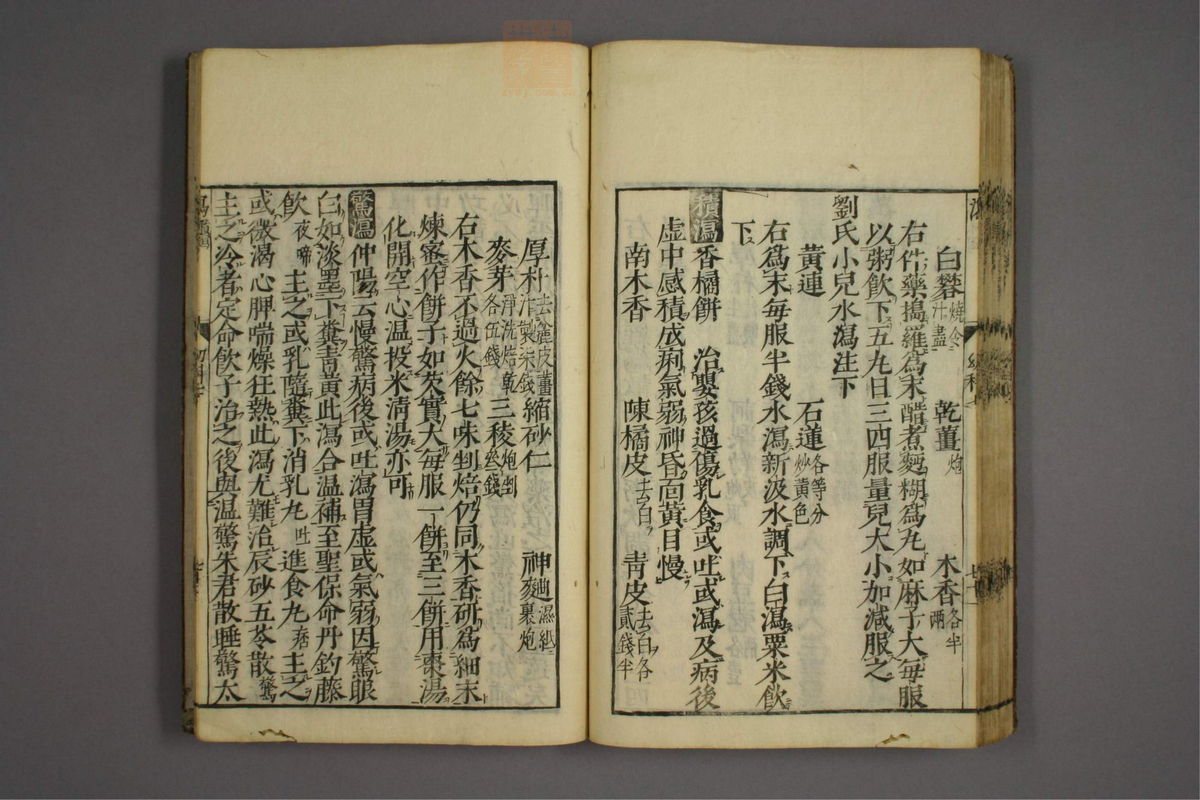 白礬燒令汁盡　乾薑炮　木香各半兩
右件藥搗羅爲末醋煮麪糊爲丸如麻子大每服
以粥飲下五丸日三四服量兒大小加減服之
劉氏小兒水瀉注下
黃連　石蓮各等分炒黃色
右爲末每服半錢水瀉新汲水調下白瀉粟米飲
下
積瀉香橘餅　治嬰孩過傷乳食或吐或瀉及病後
虛中感積成痢氣弱神昏面黃目慢
南木香　陳橘皮去白　青皮去白各貳錢半
厚朴去麄皮薑汁製柒錢　縮砂仁　神麯濕紙裹炮
麥芽淨洗焙乾各伍錢　三稜炮剉叁錢
右木香不過火餘七味剉焙仍同木香研爲細末
煉蜜作餅子如芡實大每服一餅至三餅用棗湯
化開空心溫投米清湯亦可
驚瀉仲陽云慢驚病後或吐瀉胃虛或氣弱因驚眼
白如淡墨下糞青黃此瀉合溫補至聖保命丹鈎藤
飲夜啼主之或乳隨糞下消乳丸吐進食丸痞主之
或微渴心脾喘燥狂熱此瀉尤難治辰砂五苓散驚
主之冷者定命飲子治之後與溫驚朱君散睡驚太